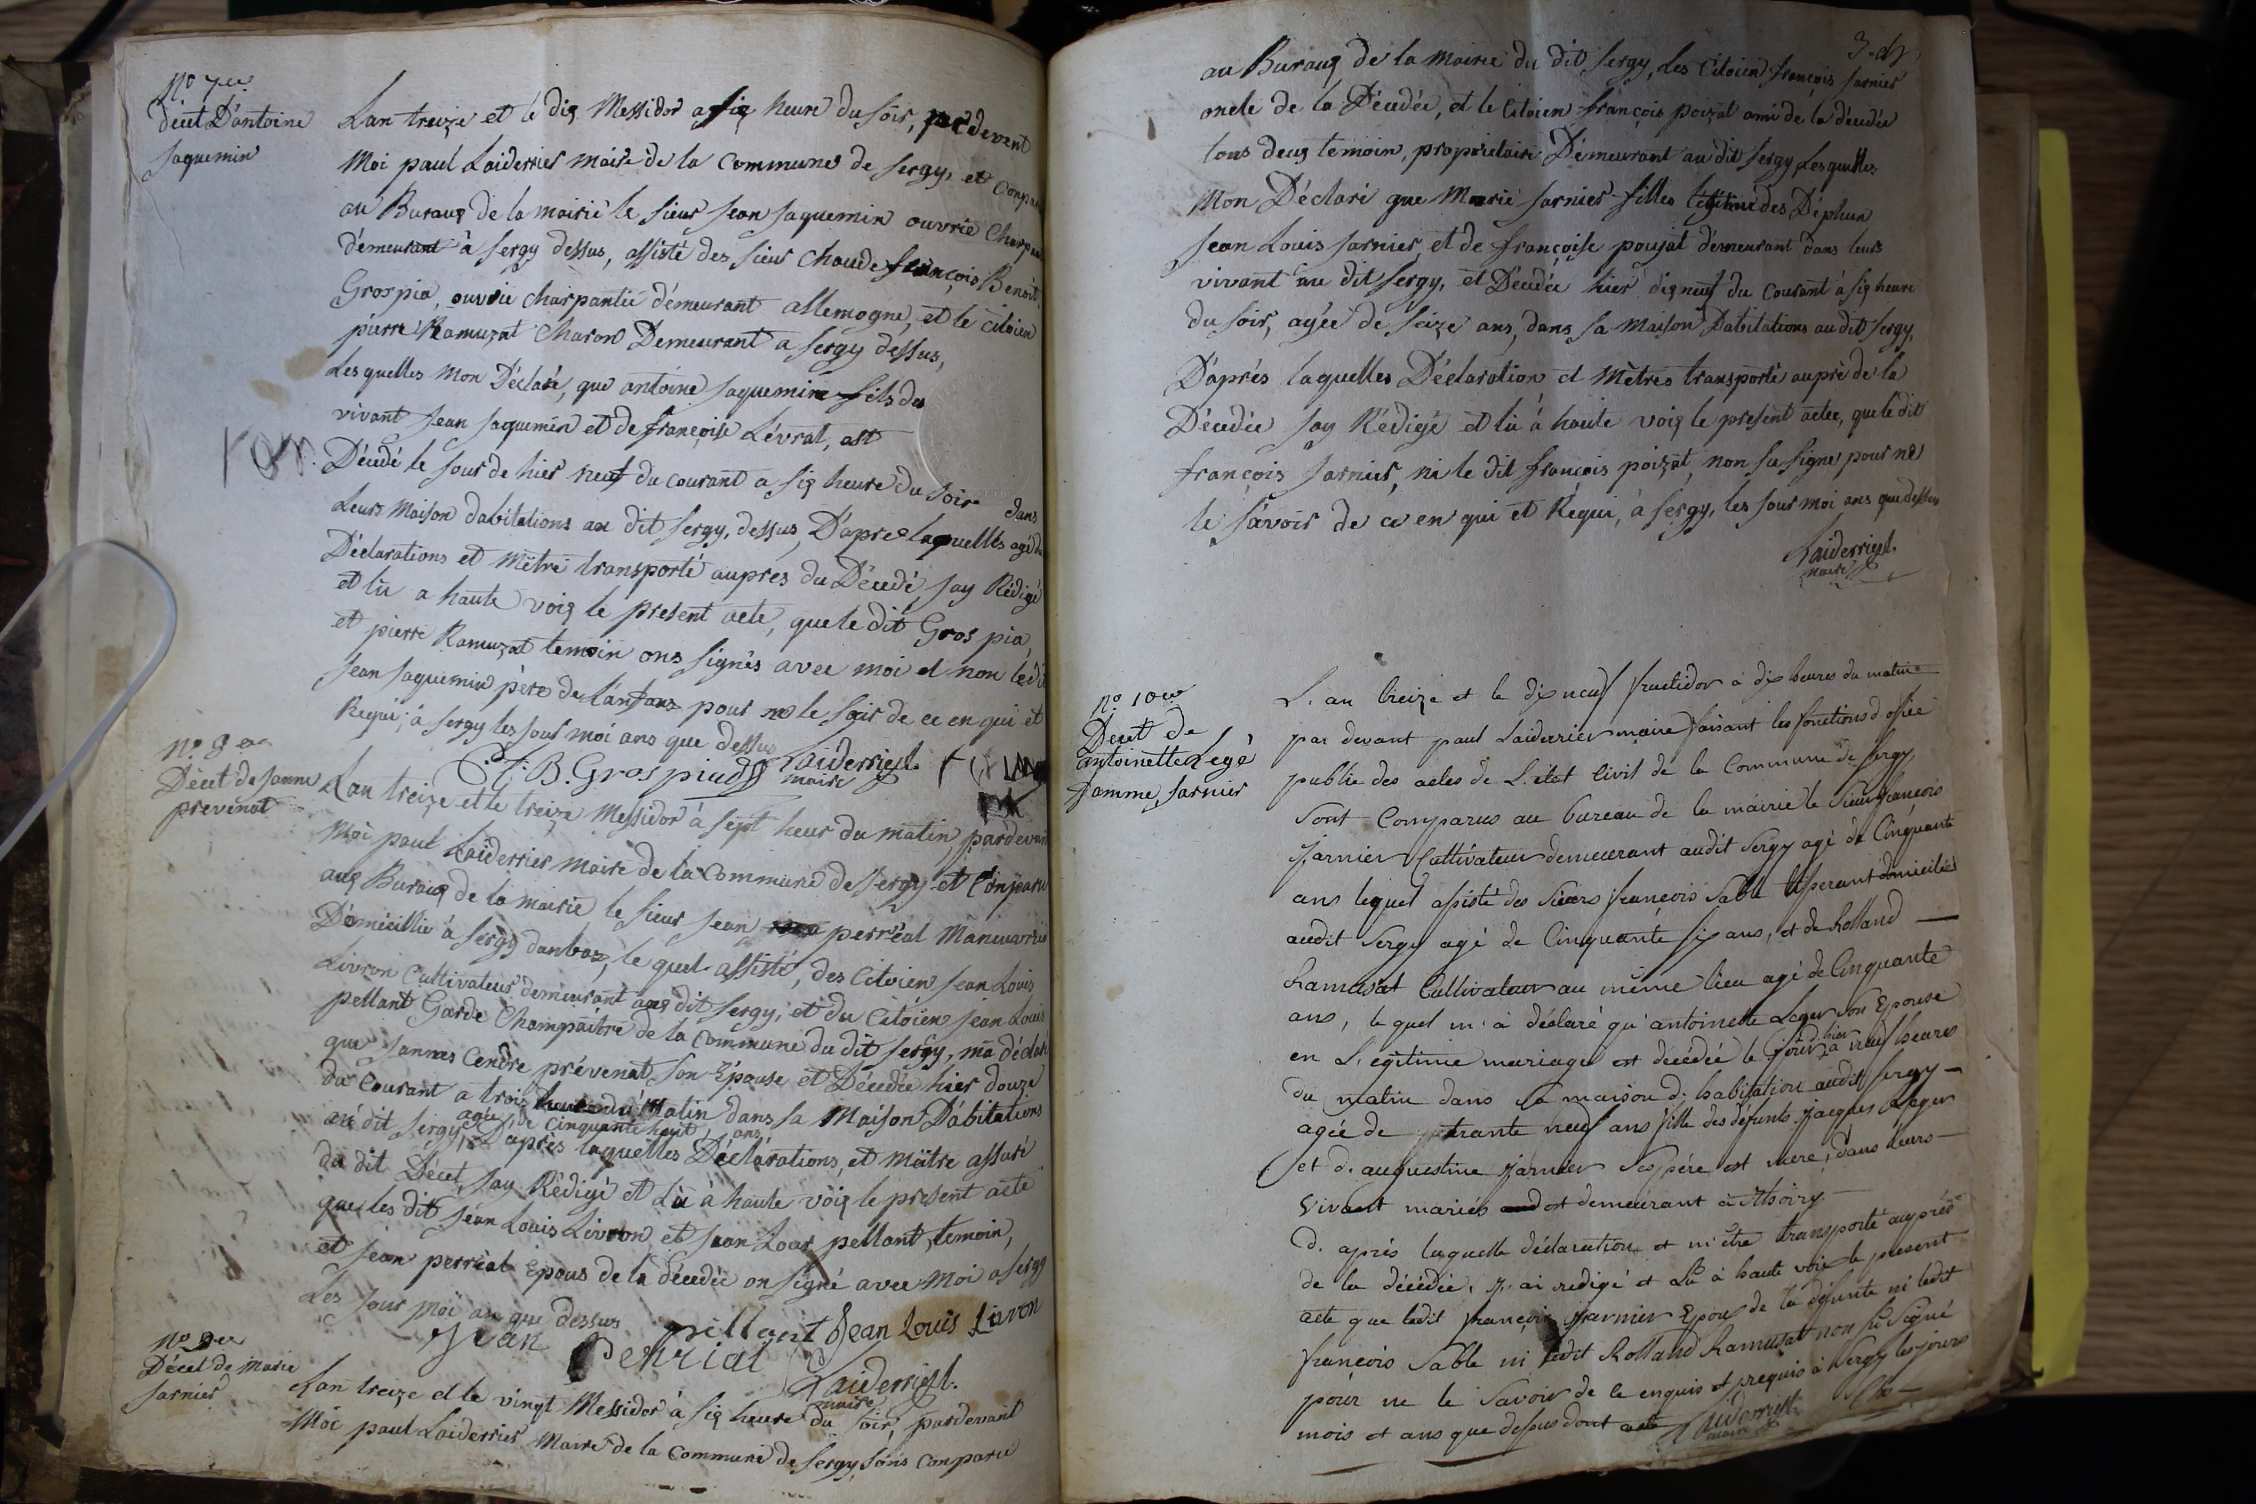 No 7me
Décet D'antoine
Jaquemin
Lan treize et le dix Messidor a six heure du soir, pardevent
Moi paul Laiderrier maire de la Commune de Sergy, et Conparu
au Buraux de la mairie le sieur Jean Jaquemin ouvrie Charpan
démeurant à Sergy dessus, assisté des sieur Claude françois Benoit
Grospia, ouvrié charpantié démeurant allemogne, et le citoien
pierre Ramuzat Charon Demeurant a Sergy dessus,
Les quelles mon Déclaré, que antoine Jaquemin fils des
vivant Jean Jaquemin et de françoise Lévrat, est
Décédé le jour de hier neuf du courant a six heure du soir dans
Leurs maison dabitations au dit Sergy, dessus, D'apre laquelles agé de
Déclarations et mètre transporté aupres du Décedé, jay Rédigé
et lû a haute voix le present acte, que le dit Gros pia,
et pierre Ramuzat temoin ons signés avec moi et non le dit
Jean Jaquemin père de lanfans pour ne le savoir de ce en qui et
Requi, à Sergy les jour moi ans que dessus
C. f. B. Grospiud Laiderrier
maire
No 8me
Décet de Janne
prevenat
Lan treize et le treize Messidor à sept heur du matin, pardevant
Moi paul Laiderrier maire de la Commune de Sergy et Conparu
aux Buraux de la mairie le sieur Jean perréal Maneuvrie
Domicillié à Sergy danbas, le quel assisté, des Citoien Jean Louis
Livron Cultivateur demeurant aux dit Sergy, et du Citoien Jean Louis
pellant Garde Champaitre de la Commune du dit Sergy, ma déclaré
que Jannes Cendre prévenat son Épouse et Décédée hier douze
du Courant a trois heure du Matin dans sa Maison D'abitations
agée de cinquante heuit ans
au dit Sergy, D'après laquelles Declarations, et mètre assuré
du dit Décet, jay Rédigé et Lû à haute voix le present acte
que les dit Jean Louis Livron et Jean Louis pellant, temoin,
et Jean perréal Epous de la décedée on signé avec Moi a Sergy
Les Jour Moi an que dessus
Jean Perrial pillant Jean Louis Livron
Laiderrier
maire
No 9me
Décet de Marie
Jarnier
Lan treize et le vingt Messidor à six heure du soir, pardevant
Moi paul Laiderrier Maire de la Commune de Sergy, sons Conparu
au Buraux de la Mairie du dit Sergy, Les Citoien françois Jarnier
oncle de la Décedée, et le Citoien françois poizat ami de la décedée
tous deux temoin, proprietaire Démeurant au dit Sergy, Lesquelles
Mon Déclaré que Marie Jarnier filles légitime des Déphun
Jean Louis Jarnier, et de françoise poujat démeurant dans leurs
vivant au dit Sergy, et Décedée hier digneuf du Courant à six heure
du soir, agée de seize ans, dans sa Maison Dabitations au dit Sergy,
D'après laquelles Déclaration et mètres transporté auprè de la
Décedée jay Rédigé et lû à haute voix le present actee, que le dit
françois Jarnier, ni le dit françois poizat, non su signer pour ne
le sávoir de ce en qui et Requi, à Sergy, les jour moi ans que dessus
Laiderrier
maire
No 10me
Decet de
antoinette Legé
famme Jarnier
L'an treize et le dix neuf fructidor à dix heures du matin
par devant paul Laiderrier maire faisant les fonctions d'ofsiée
public des actes de L'état Civil de la Commune de Sergy,
sont Comparus au bureau de la mairie le sieur françois
Jarnier Cultivateur demeurant audit Sergy agé de Cinquante
ans lequel assisté des sieurs françois Sable tisserant domicilié
audit Sergy agé de Cinquante six ans, et de Rolland
Ramusat Cultivateur au même lieu agé de Cinquante
ans, le quel m'à déclaré qu'antoinette Leger son Epouse
en Légitime mariage est décédée le jour d'hier à neuf heures
du matin dans sa maison d'habitation audit Sergy
agée de trante neuf ans fille des défunts Jacques Leger
et d'augustine Jarnier ses père et mere, dans leurs
vivant mariés et demeurant à Thoiry
d'après laquelle déclaration et m'être transporté auprès
de la décédée, j'ai redigé et Lû à haute voix le présent
acte que ledit françois Jarnier Epoux de la défunte ni ledit
françois Sable ni ledit Rolland Ramusat non sû Signé
pour ne le savoir de ce enquis et prequis à Sergy les jours
mois et ans que dessus dont acte Laiderrier
maire